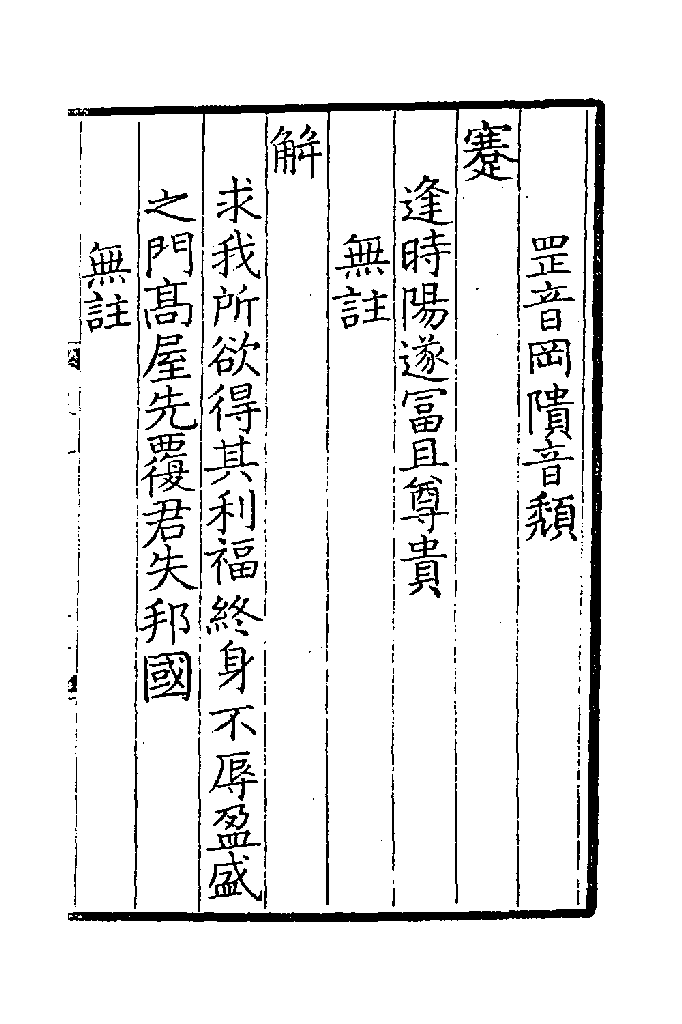 罡音岡隤音頽
蹇
逢時陽遂冨且尊貴
無註
解
求我所欲得其利福終身不辱盈盛
之門髙屋先覆君失邦國
無註